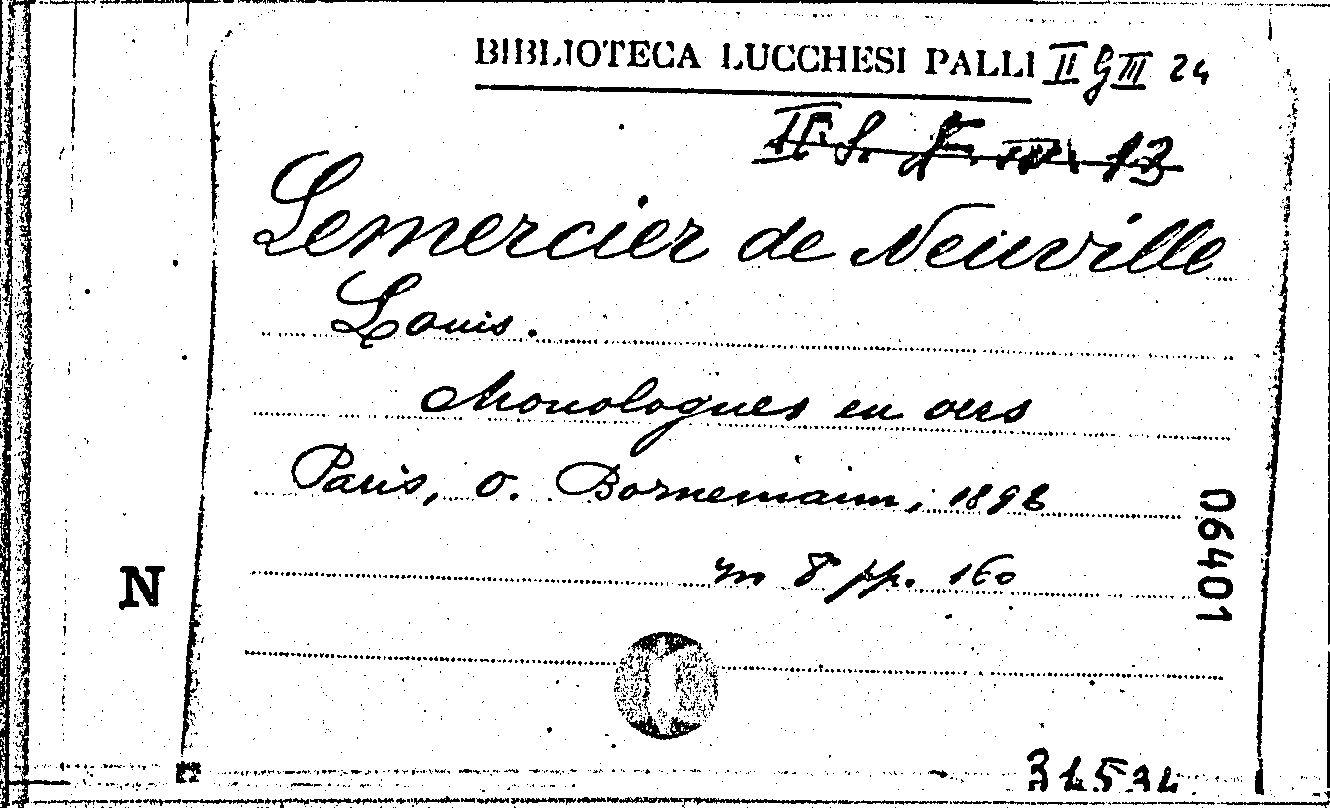 BIBLIOTECA LUCCHESI PALLI II G III 24
Lemercier de Neuville
Louis.
Monologues en vers
Paris, O. Bornemann, 1898
in 8 pp. 160
06401
N